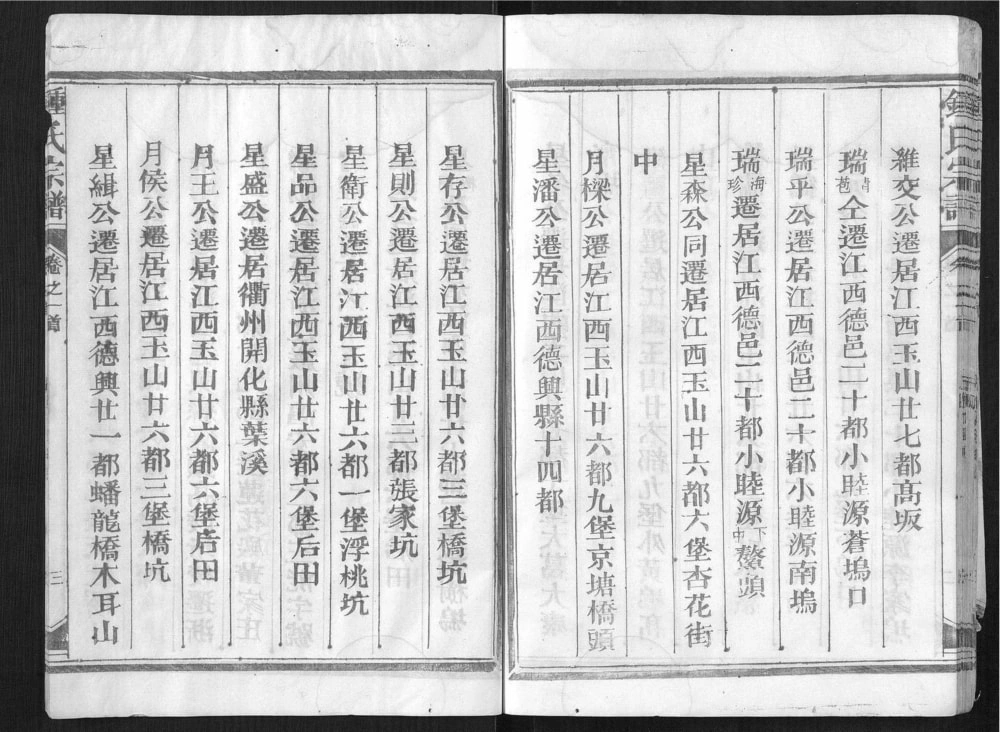 維交公遷居江西玉山廿七都高坂
瑞清苍仝遷江西德邑二十都小睦源蒼塢口
瑞平公遷居江西德邑二十都小睦源南塢
瑞海珍遷居江西德邑二十都小睦源下中鰲頭
星森公同遷居江西玉山廿六都六堡杏花街
中
月樑公遷居江西玉山廿六都九堡京塘橋頭
星潘公遷居江西德興縣十四都
鍾氏宗譜 卷之首 三
星存公遷居江西玉山廿六都三堡橋坑
星則公遷居江西玉山廿三都張家坑
星衛公遷居江西玉山廿六都一堡浮桃坑
星品公遷居江西玉山廿六都六堡后田
星盛公遷居衢州開化縣葉溪
月王公遷居江西玉山廿六都六堡店田
月侯公遷居江西玉山廿六都三堡橋坑
星緝公遷居江西德興廿一都蟠龍橋木耳山